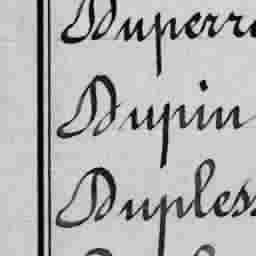 Duperre
Dupin
Dupless